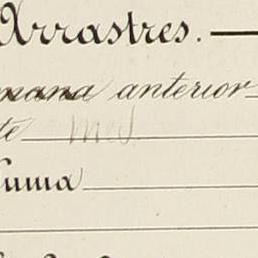 Arrastres.
mana anterior
te
Suma